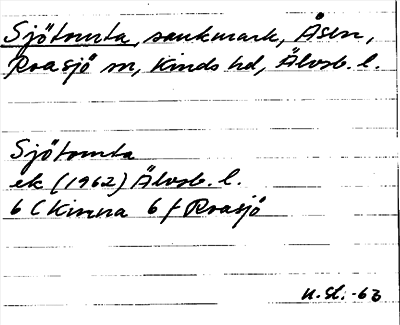 Sjötomta, sankmark, Åsen,
Roasjö sn, Kinds hd, Älvsb. l.
Sjötomta
ek (1962) Älvsb. l.
6 C Kinna 6 f Roasjö
-63